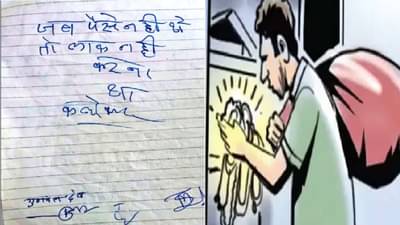 जब पैसे न ही थे
तो लाक न ही
करना
था
कलेक्टर